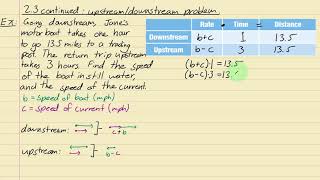 2.3 continued: upstream/downstream problem
Ex: Going downstream, Jone's
motorboat takes one hour
to go 13.5 miles to a trading
post. The return trip upstream
takes 3 hours. Find the speed
of the boat in still water,
and the speed of the current.
b = speed of boat (mph)
c = speed of current (mph)
downstream:
c+b
upstream:
b-c
Rate · Time = Distance
Downstream b+c 1 13.5
Upstream b-c 3 13.5
(b+c)1 = 13.5
(b-c)3 = 13.